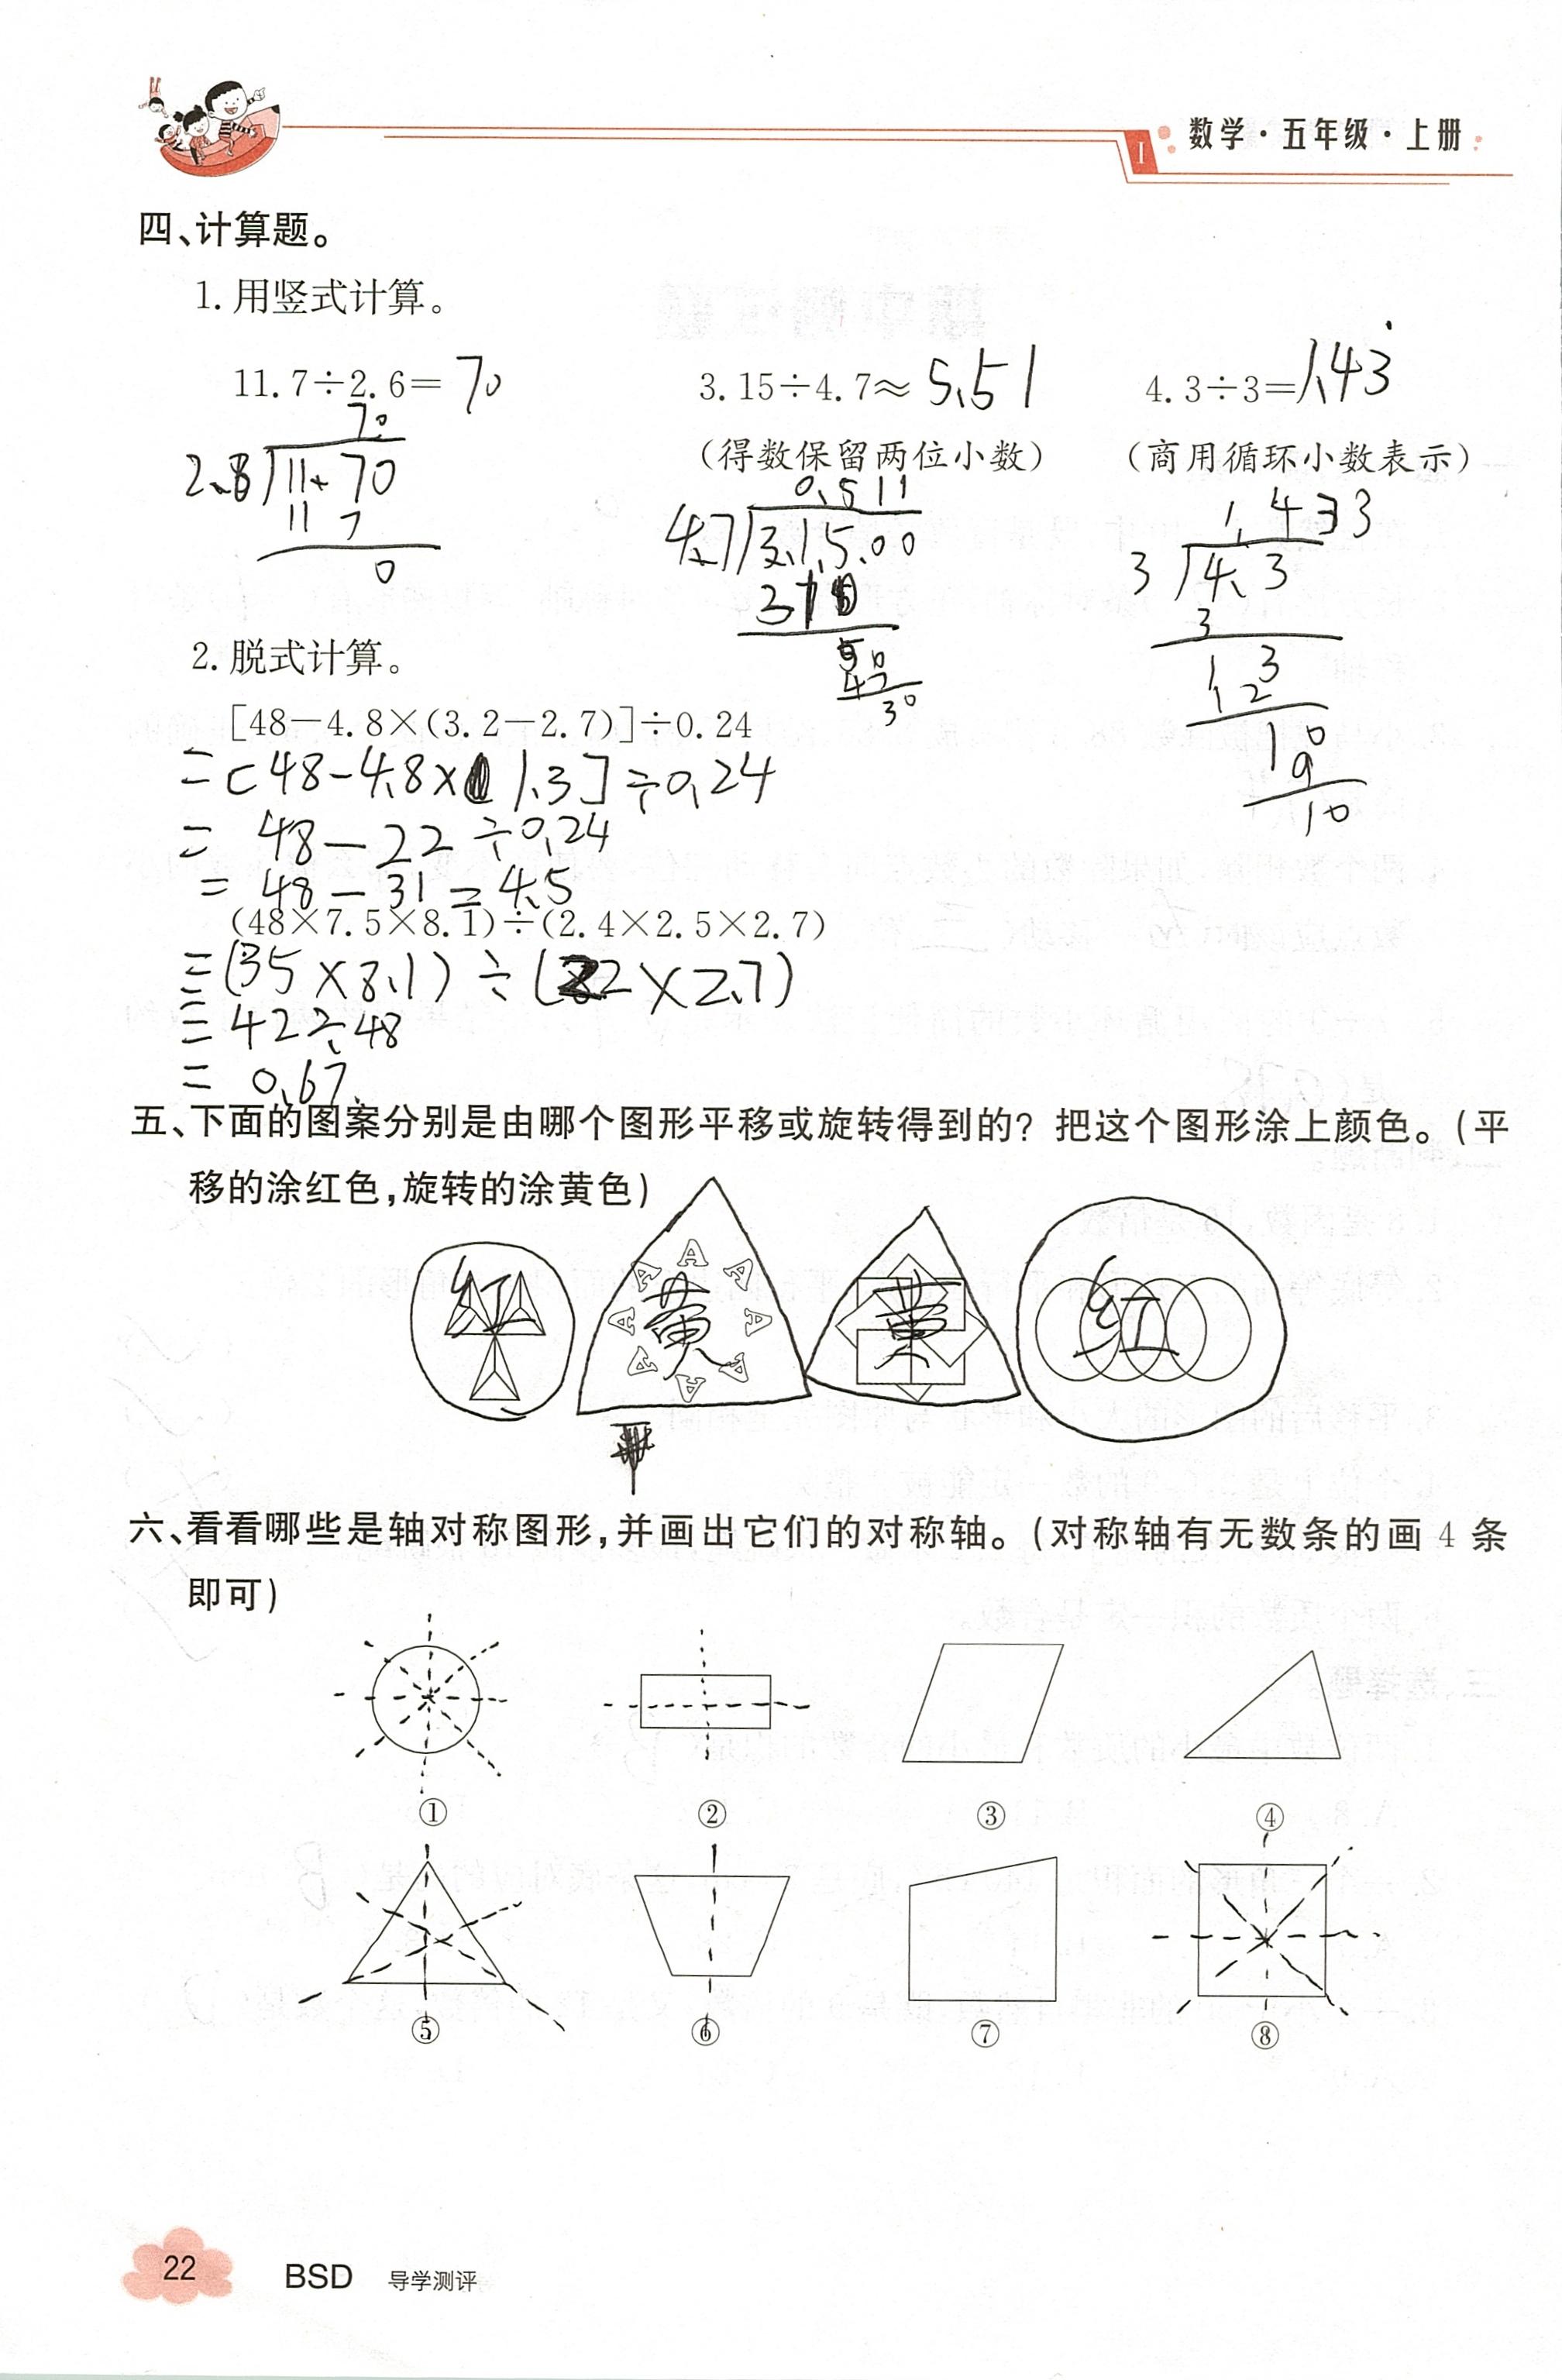 数学·五年级·上册
I
四、计算题。
1. 用竖式计算。
11.7÷2.6= 70
3.15÷4.7≈ 5.51
4.3÷3=1.43̇
(得数保留两位小数)
(商用循环小数表示)
70
11.70
11 7
0
0.511
4.7 3.15.00
30
1.433
3 4.3
3
13
12
10
9
10
2. 脱式计算。
[48-4.8×(3.2-2.7)]÷0.24
=[48-4.8× 1.3]÷0.24
= 48-22÷0.24
= 48-31=4.5
(48×7.5×8.1)÷(2.4×2.5×2.7)
=(35×8.1)÷(22×2.7)
=42÷48
= 0.67
五、下面的图案分别是由哪个图形平移或旋转得到的? 把这个图形涂上颜色。(平
移的涂红色,旋转的涂黄色)
红 黄 黄 红
A A A A A A A A
六、看看哪些是轴对称图形,并画出它们的对称轴。(对称轴有无数条的画 4 条
即可)
① ② ③ ④
⑤ ⑥ ⑦ ⑧
22 BSD 导学测评